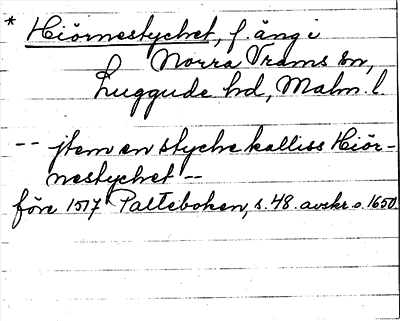 * Hiörnestychet, f. äng i
Norra Vrams sn,
Luggude hd, Malm. l.
-- jtem en styche kalliss Hiör-
nestychet --
före 1517 Palteboken, s. 48. avskr. o. 1650.